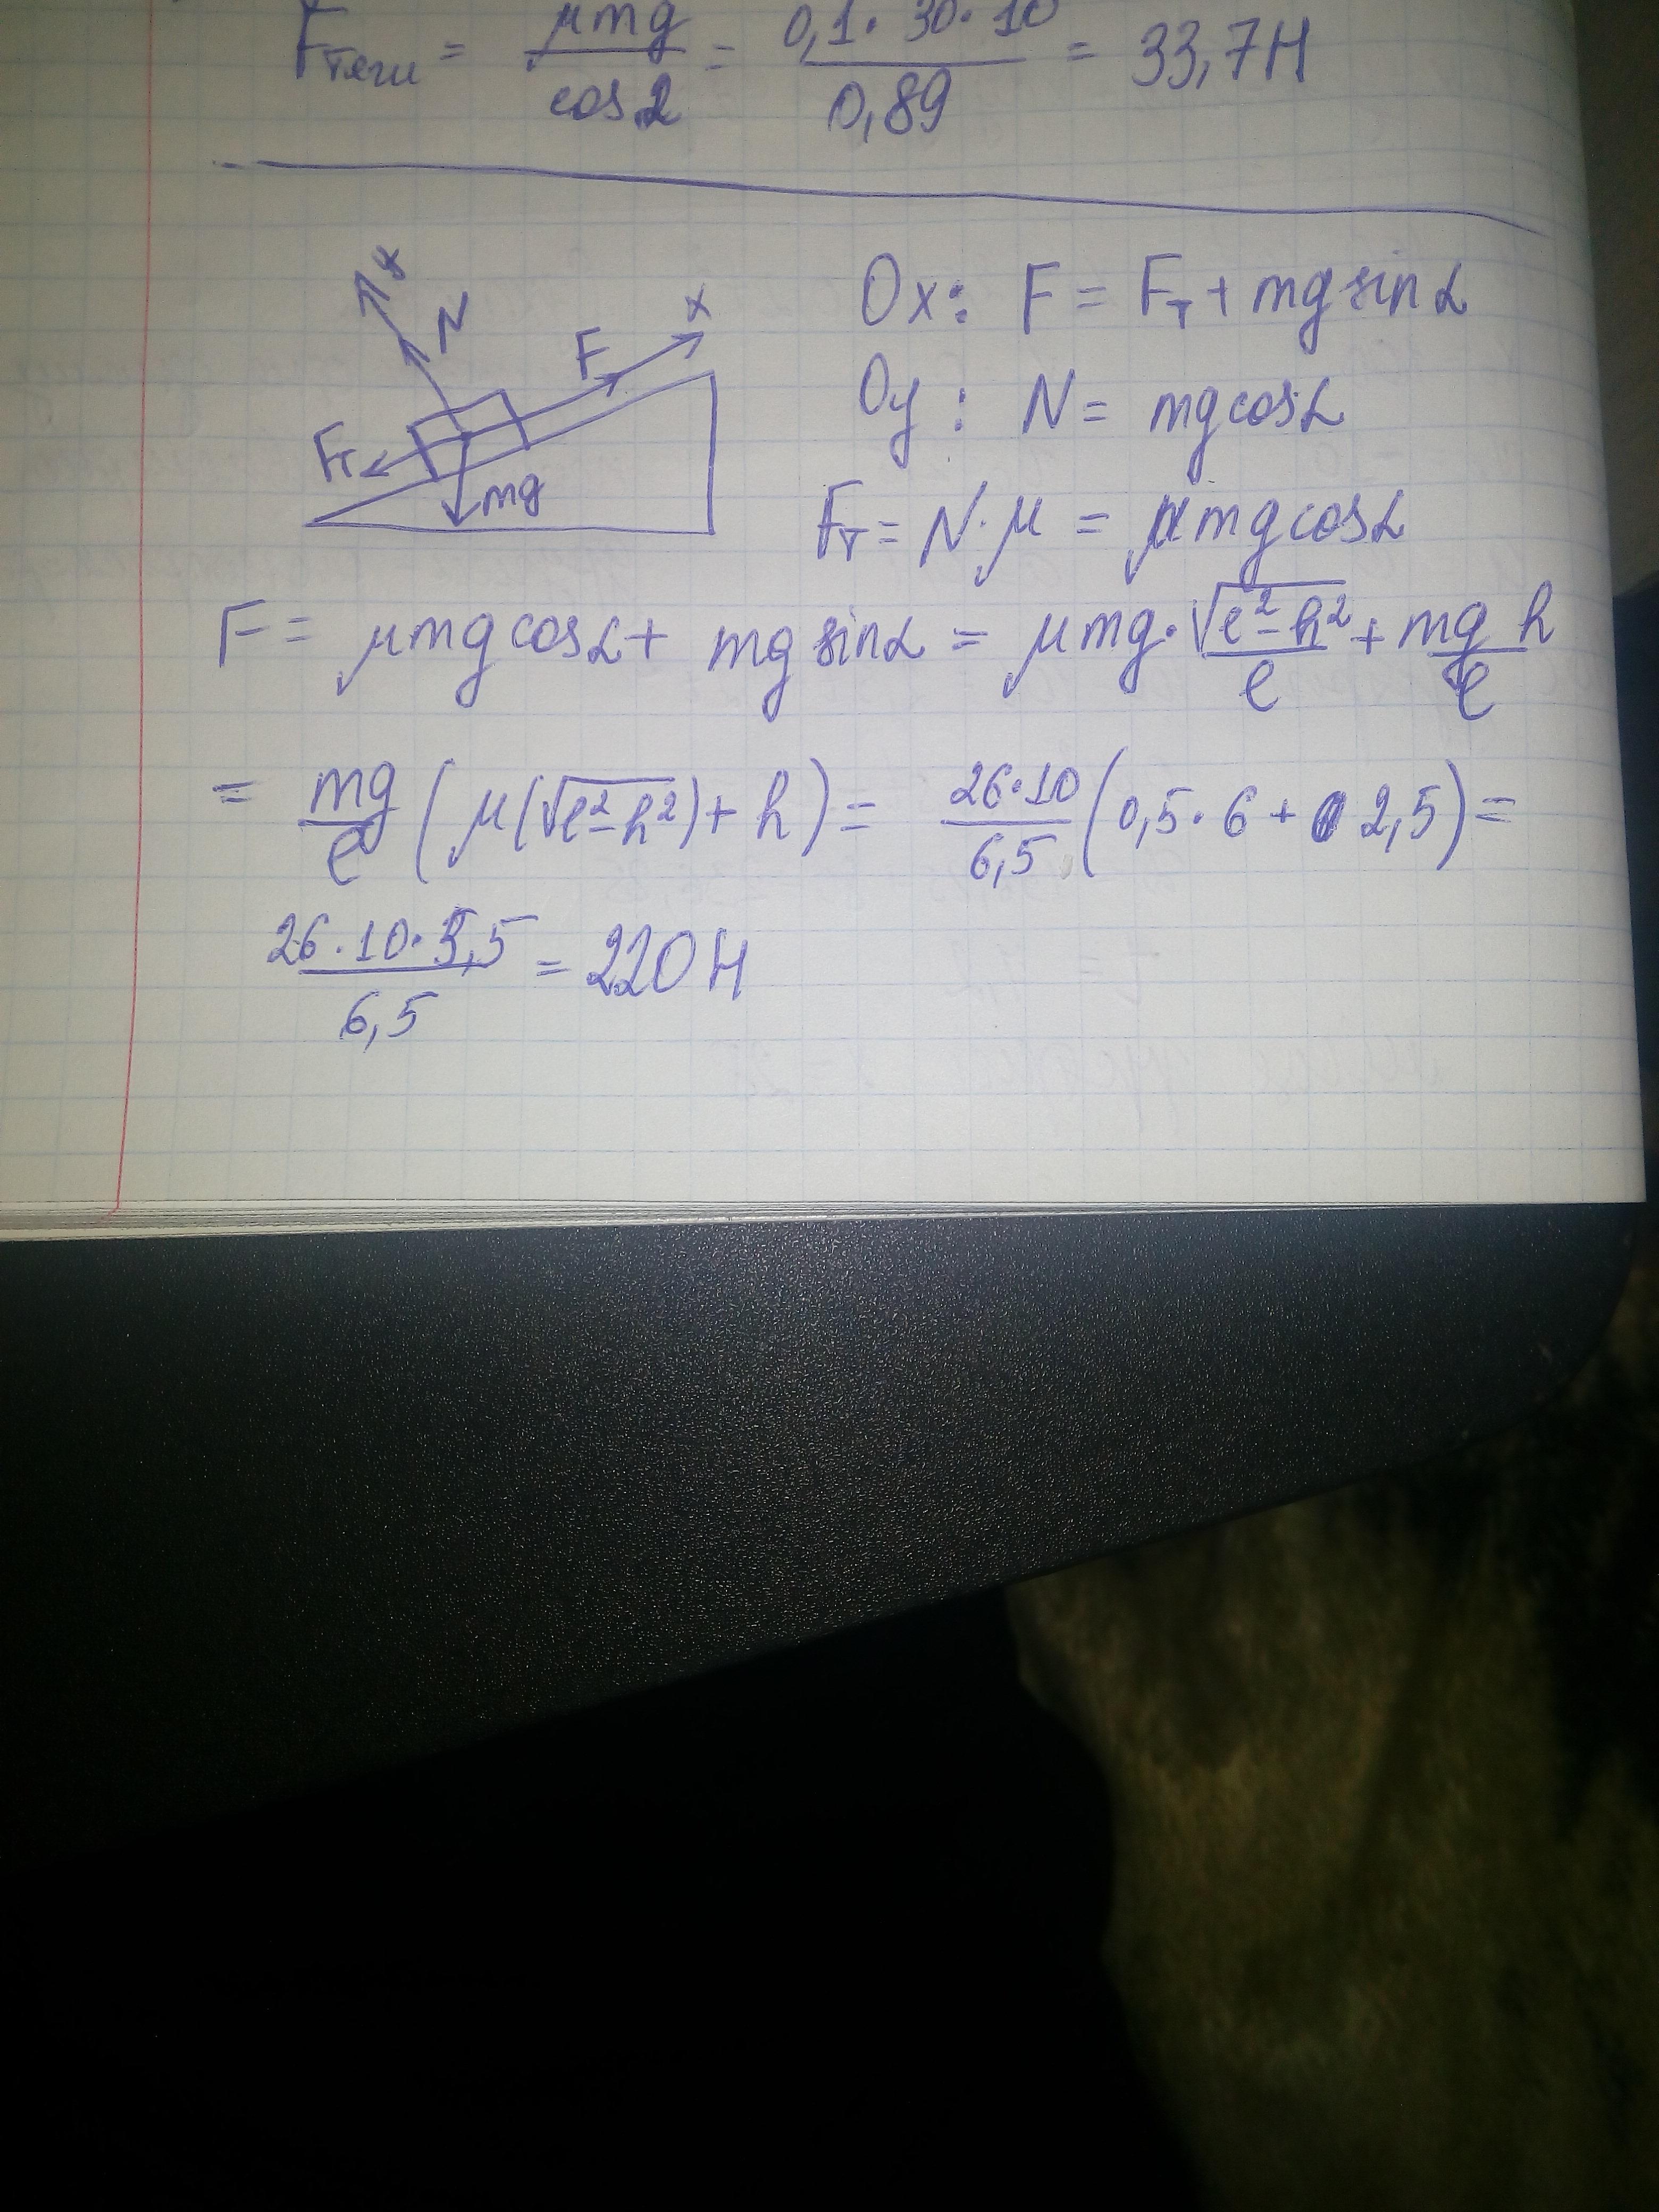 Fтяги = μmg/cosα = 0,1·30·10/0,89 = 33,7Н
y
N
F
x
Fт
mg
Ox: F = Fт + mg sinα
Oy: N = mg cosα
Fт = N·μ = μmg cosα
F = μmg cosα + mg sinα = μmg·√(l²-h²)/l + mg h/l
= mg/l (μ(√l²-h²) + h) = 26·10/6,5 (0,5·6 + 2,5) =
26·10·5,5/6,5 = 220Н